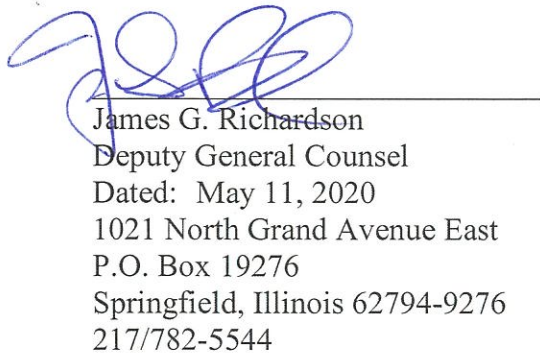 James G. Richardson
Deputy General Counsel
Dated: May 11, 2020
1021 North Grand Avenue East
P.O. Box 19276
Springfield, Illinois 62794-9276
217/782-5544